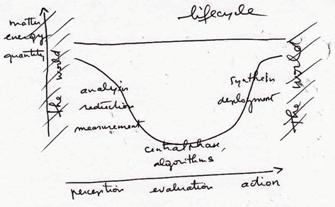 lifecycle
matter
energy
quantity
the world
the world
analysis
reduction
measurement
synthesis
deployment
central phase,
algorithms
perception evaluation action